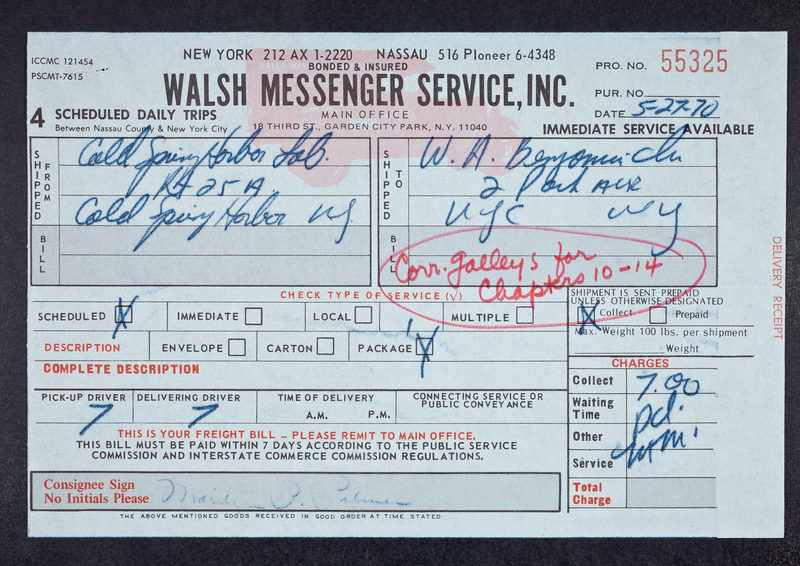 ICCMC 121454
PSCMT-7615
NEW YORK 212 AX 1-2220 NASSAU 516 PIoneer 6-4348
BONDED & INSURED
WALSH MESSENGER SERVICE, INC.
MAIN OFFICE
18 THIRD ST., GARDEN CITY PARK, N.Y. 11040
4 SCHEDULED DAILY TRIPS
Between Nassau County & New York City
PRO. NO. 55325
PUR. NO.
DATE 5-27-70
IMMEDIATE SERVICE AVAILABLE
SHIPPED FROM
Cold Spring Harbor Lab.
Rt 25A
Cold Spring Harbor NY
BILL
SHIPPED TO
W. A. Benjamin
2 Park Ave
NYC NY
BILL
Corr. galleys for
Chapters 10-14
CHECK TYPE OF SERVICE (√)
SCHEDULED X IMMEDIATE LOCAL MULTIPLE
SHIPMENT IS SENT PREPAID
UNLESS OTHERWISE DESIGNATED
X Collect Prepaid
Max. Weight 100 lbs. per shipment
Weight
DESCRIPTION ENVELOPE CARTON PACKAGE X
COMPLETE DESCRIPTION
CHARGES
Collect 7.00
Waiting Time pd.
Other
Service
Total Charge
PICK-UP DRIVER 7
DELIVERING DRIVER 7
TIME OF DELIVERY
A.M. P.M.
CONNECTING SERVICE OR
PUBLIC CONVEYANCE
THIS IS YOUR FREIGHT BILL – PLEASE REMIT TO MAIN OFFICE.
THIS BILL MUST BE PAID WITHIN 7 DAYS ACCORDING TO THE PUBLIC SERVICE
COMMISSION AND INTERSTATE COMMERCE COMMISSION REGULATIONS.
Consignee Sign
No Initials Please
THE ABOVE MENTIONED GOODS RECEIVED IN GOOD ORDER AT TIME STATED
DELIVERY RECEIPT